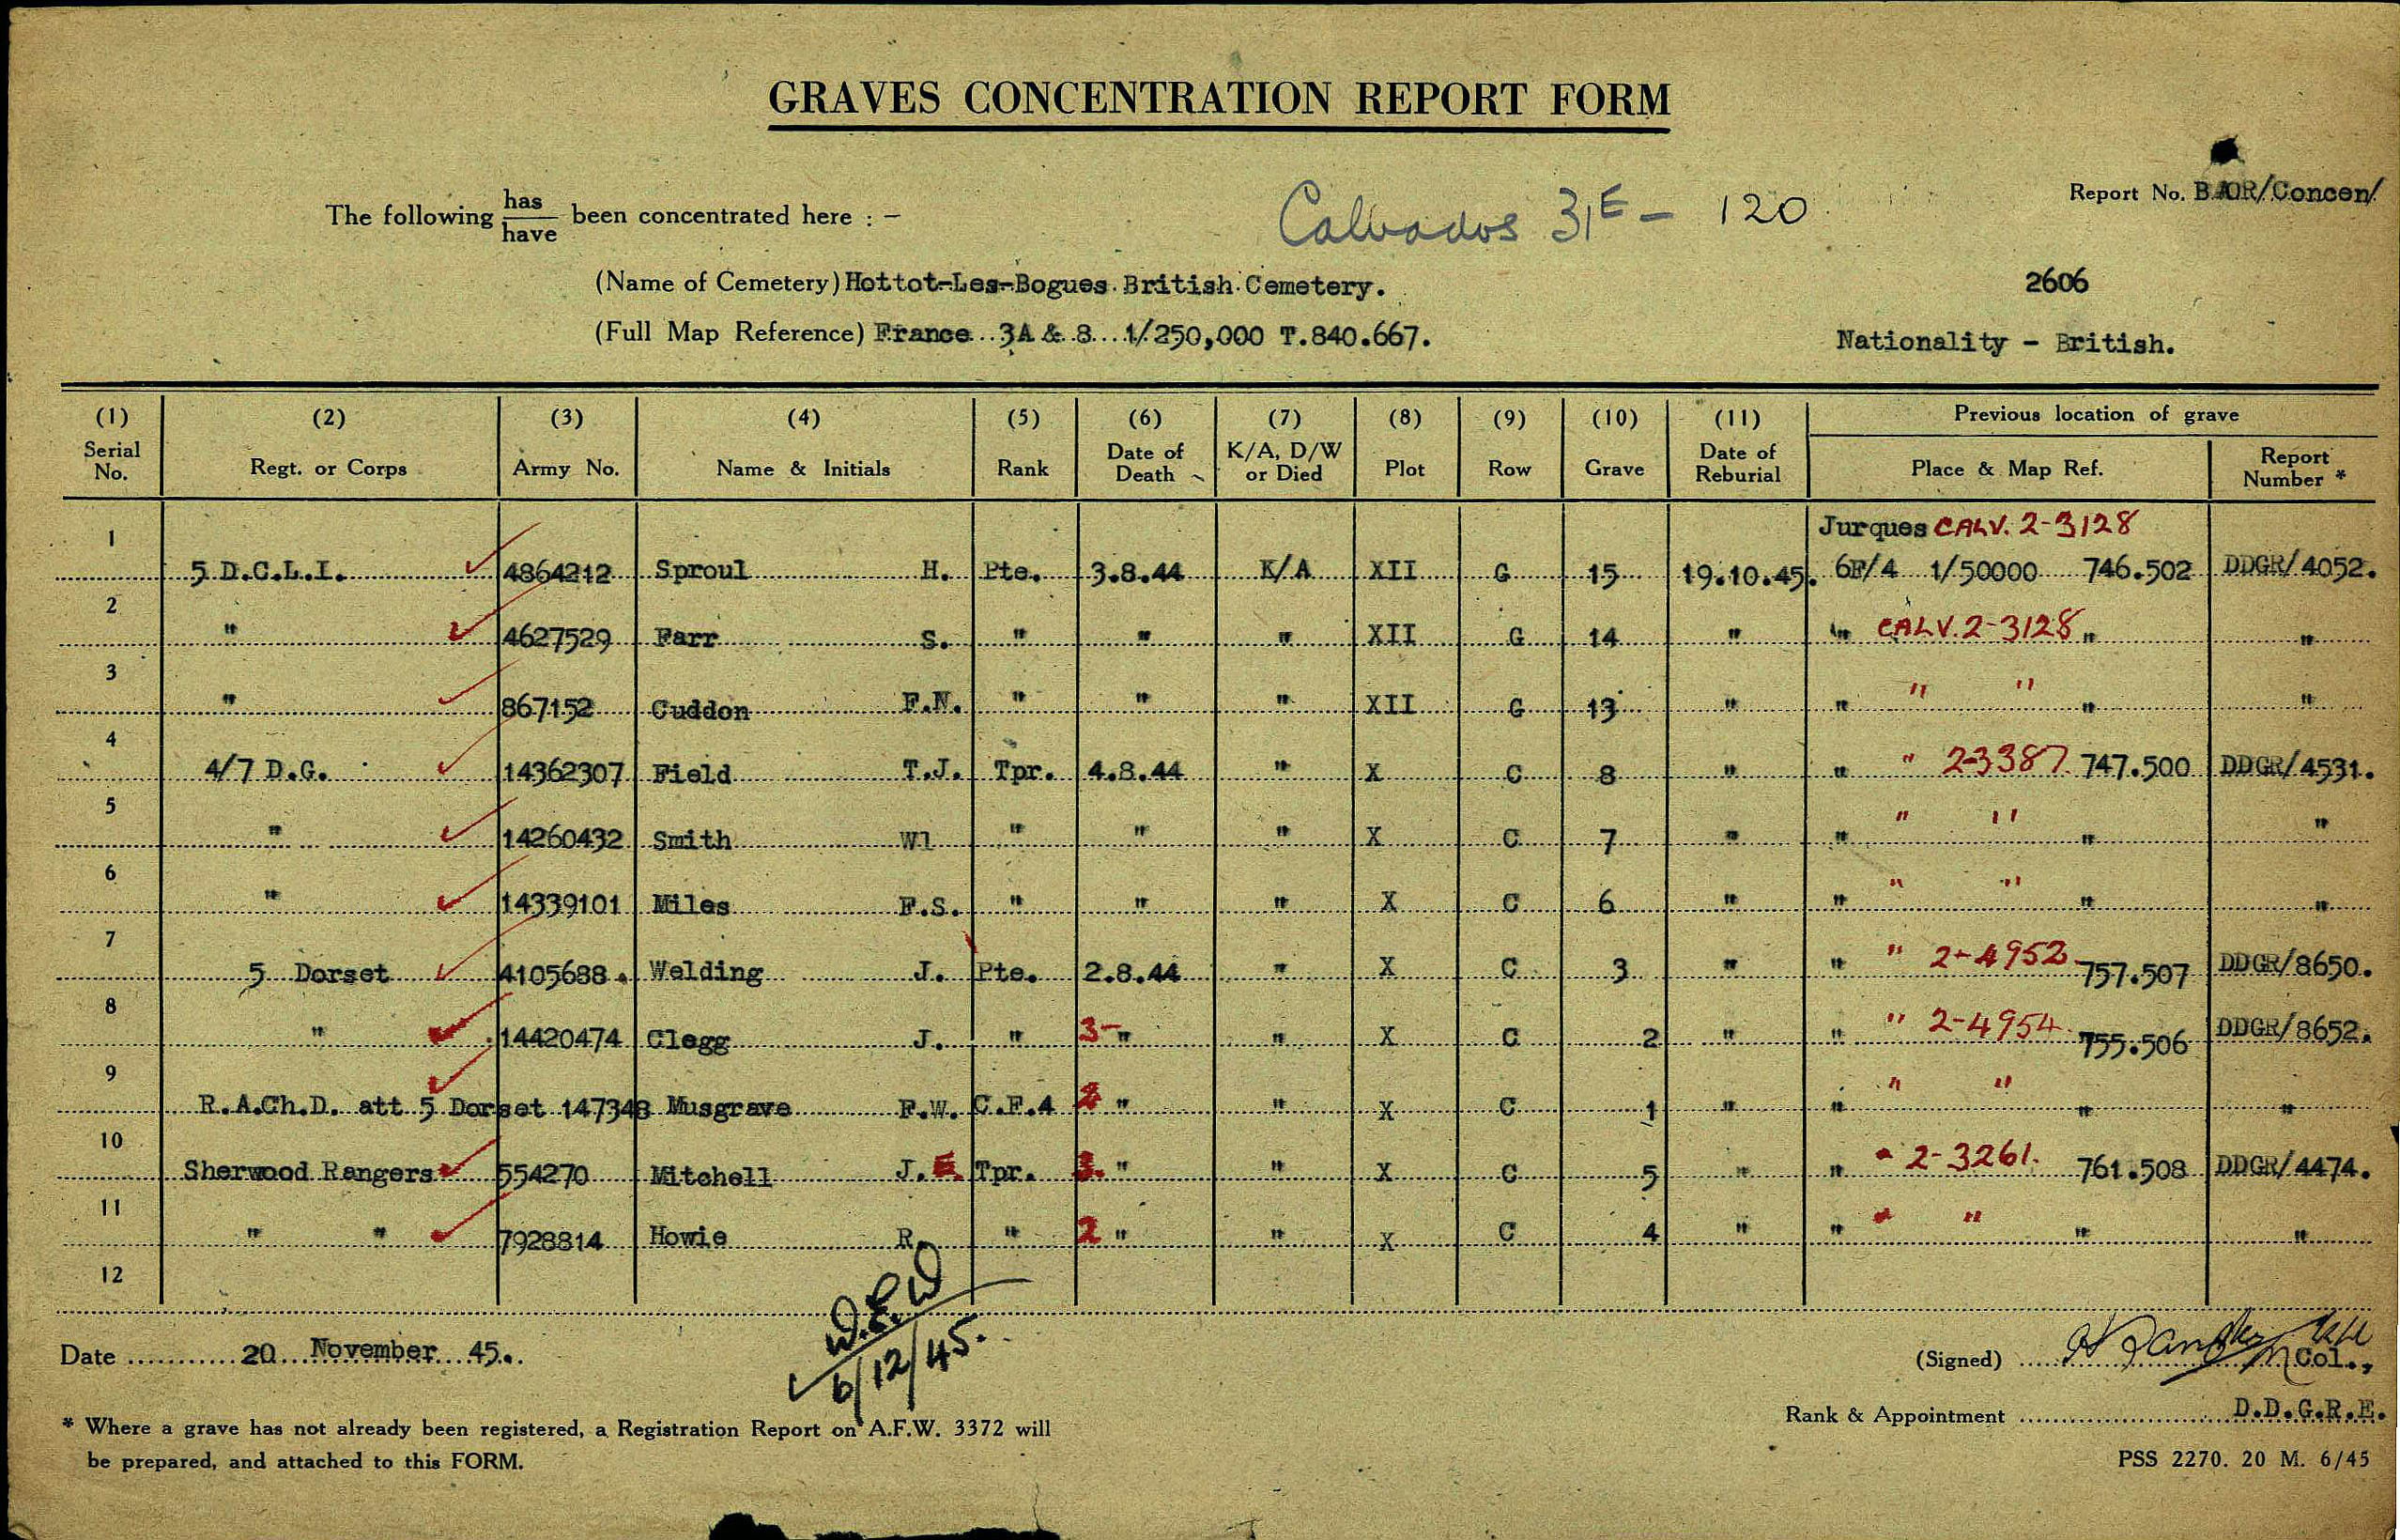 GRAVES CONCENTRATION REPORT FORM
Report No. BAOR/Concen/
The following has/have been concentrated here : —
Calvados 31E — 120
(Name of Cemetery) Hottot-Les-Bogues British Cemetery.
2606
(Full Map Reference) France 3A & 8 1/250,000 T.840.667.
Nationality - British.
(1) Serial No. (2) Regt. or Corps (3) Army No. (4) Name & Initials (5) Rank (6) Date of Death (7) K/A, D/W or Died (8) Plot (9) Row (10) Grave (11) Date of Reburial Previous location of grave Place & Map Ref. Report Number *
Jurques CALV. 2-3128
1 5 D.C.L.I. 4864212 Sproul H. Pte. 3.8.44 K/A XII G 15 19.10.45. 6F/4 1/50000 746.502 DDGR/4052.
2 " 4627529 Farr S. " " " XII G 14 " " CALV. 2-3128 " "
3 " 867152 Cuddon F.N. " " " XII G 13 " " " " " "
4 4/7 D.G. 14362307 Field T.J. Tpr. 4.8.44 " X C 8 " " " 2-3387 747.500 DDGR/4531.
5 " 14260432 Smith Wl " " " X C 7 " " " " " "
6 " 14339101 Miles F.S. " " " X C 6 " " " " " "
7 5 Dorset 4105688. Welding J. Pte. 2.8.44 " X C 3 " " " 2-4952 757.507 DDGR/8650.
8 " 14420474 Clegg J. " 3 " " X C 2 " " " 2-4954 755.506 DDGR/8652.
9 R.A.Ch.D. att 5 Dorset 147348 Musgrave F.W. C.F.4 2 " " X C 1 " " " " " "
10 Sherwood Rangers 554270 Mitchell J.E. Tpr. 3. " " X C 5 " " " 2-3261. 761.508 DDGR/4474.
11 " " 7928814 Howie R. " 2 " " X C 4 " " " " " "
12
W.E.W
6/12/45.
Date 20 November 45.
(Signed) Col.,
Rank & Appointment D.D.G.R.E.
* Where a grave has not already been registered, a Registration Report on A.F.W. 3372 will
be prepared, and attached to this FORM.
PSS 2270. 20 M. 6/45